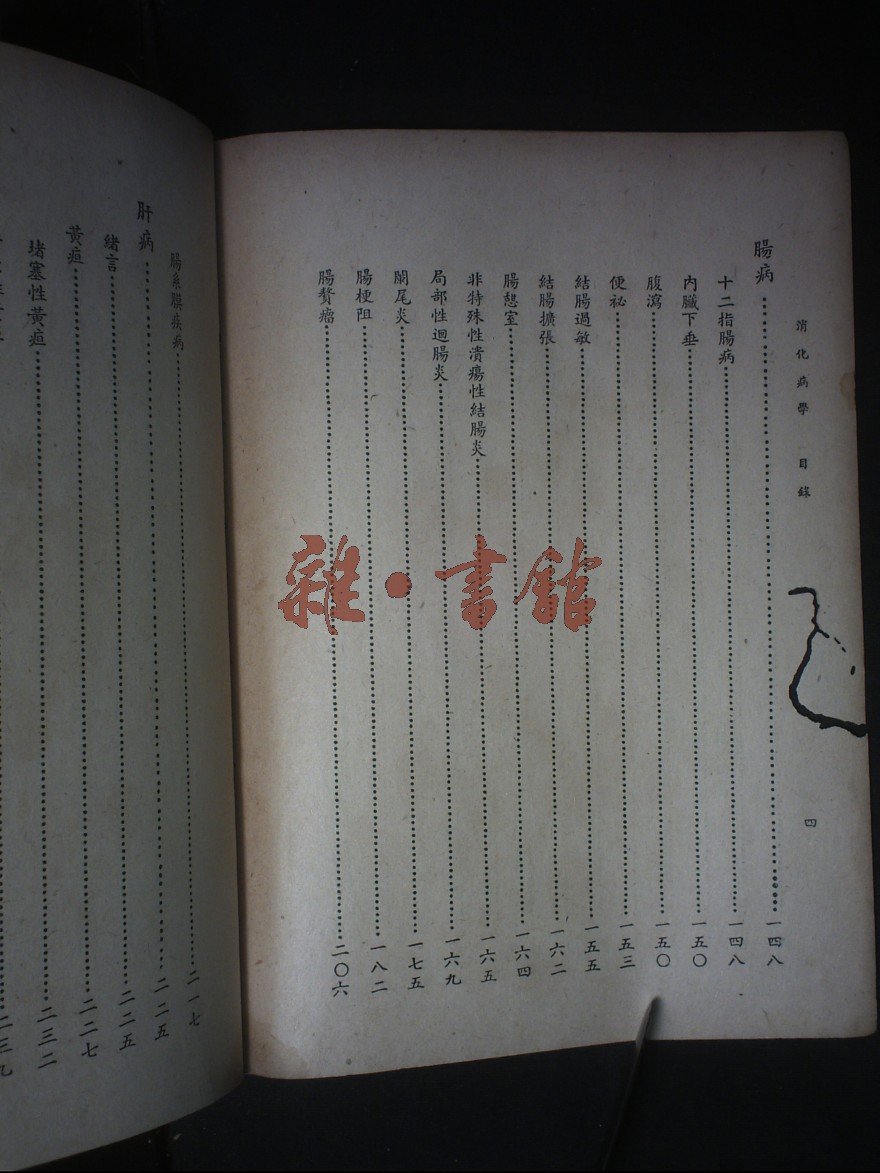 消化病學 目錄 四
腸病 一四八
十二指腸病 一四八
內臟下垂 一五〇
腹瀉 一五〇
便祕 一五三
結腸過敏 一五五
結腸擴張 一六二
腸憩室 一六四
非特殊性潰瘍性結腸炎 一六五
局部性迴腸炎 一六九
闌尾炎 一七五
腸梗阻 一八二
腸贅瘤 二〇六
腸系膜疾病 二一七
肝病 二二五
緒言 二二五
黃疸 二二七
堵塞性黃疸 二三二
二三九
雜·書館